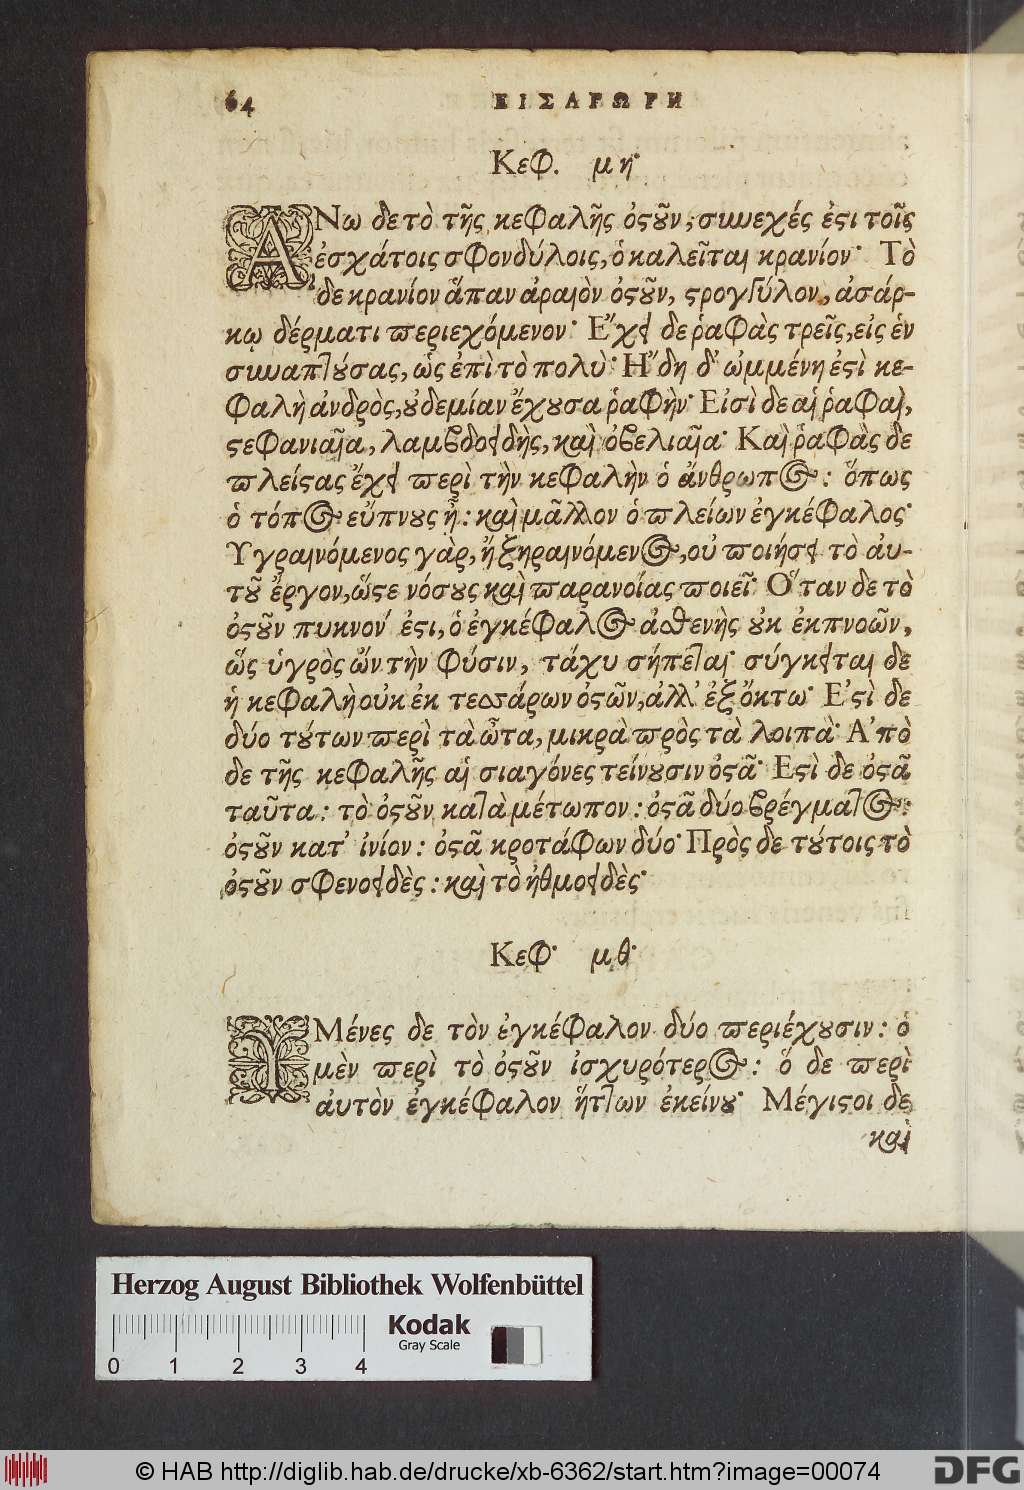 64 ΕΙΣΑΓΩΓΗ
Κεφ. μη·
ΑΝω δε τὸ τῆς κεφαλῆς ὀϛοῦν, συνεχές ἐϛι τοῖς
ἐσχάτοις σφονδύλοις, ὁ καλεῖται κρανίον· Τὸ
δε κρανίον ἅπαν ἀραιὸν ὀϛοῦν, ϛρογγύλον, ἀσάρ-
κῳ δέρματι περιεχόμενον· Ἔχει δε ῥαφὰς τρεῖς, εἰς ἓν
συναπτούσας, ὡς ἐπὶ τὸ πολὺ· Ἤδη δ' ὠμμένη ἐϛὶ κε-
φαλὴ ἀνδρὸς, οὐδεμίαν ἔχουσα ῥαφὴν· Εἰσὶ δε αἱ ῥαφαὶ,
ϛεφανιαῖα, λαμβδοειδὴς, καὶ ὀβελιαῖα· Καὶ ῥαφὰς δε
πλείϛας ἔχει περὶ τὴν κεφαλὴν ὁ ἄνθρωπος: ὅπως
ὁ τόπος εὔπνους ᾖ: καὶ μᾶλλον ὁ πλείων ἐγκέφαλος·
Υγραινόμενος γὰρ, ἢ ξηραινόμενος, οὐ ποιήσει τὸ ἀυ-
τοῦ ἔργον, ὥϛε νόσους καὶ παρανοίας ποιεῖ· Ὅταν δε τὸ
ὀϛοῦν πυκνον' ἐϛι, ὁ ἐγκέφαλος ἀσθενὴς οὐκ ἐκπνοῶν,
ὥς ὑγρὸς ὢν τὴν φύσιν, τάχυ σήπεται· σύγκειται δε
ἡ κεφαλὴ οὐκ ἐκ τεσσάρων ὀϛῶν, ἀλλ' ἐξ ὄκτω· Ἐϛὶ δε
δύο τούτων περὶ τὰ ὦτα, μικρὰ πρὸς τὰ λοιπὰ· Ἀπὸ
δε τῆς κεφαλῆς αἱ σιαγόνες τείνουσιν ὀϛᾶ· Εϛὶ δε ὀϛᾶ
ταῦτα: τὸ ὀϛοῦν κατὰ μέτωπον: ὀϛᾶ δύο βρέγματος:
ὀϛοῦν κατ' ἰνίον: ὀϛᾶ κροτάφων δύο· Πρὸς δε τούτοις τὸ
ὀϛοῦν σφενοειδὲς: καὶ τὸ ἠθμοειδὲς·
Κεφ· μθ·
ΥΜένες δε τὸν ἐγκέφαλον δύο περιέχουσιν: ὁ
μὲν περὶ τὸ ὀϛοῦν ἰσχυρότερος: ὅ δε περὶ
ἀυτὸν ἐγκέφαλον ἥττων ἐκείνου· Μέγιϛοι δε
καὶ
Herzog August Bibliothek Wolfenbüttel
Kodak
Gray Scale
0 1 2 3 4
© HAB http://diglib.hab.de/drucke/xb-6362/start.htm?image=00074
DFG